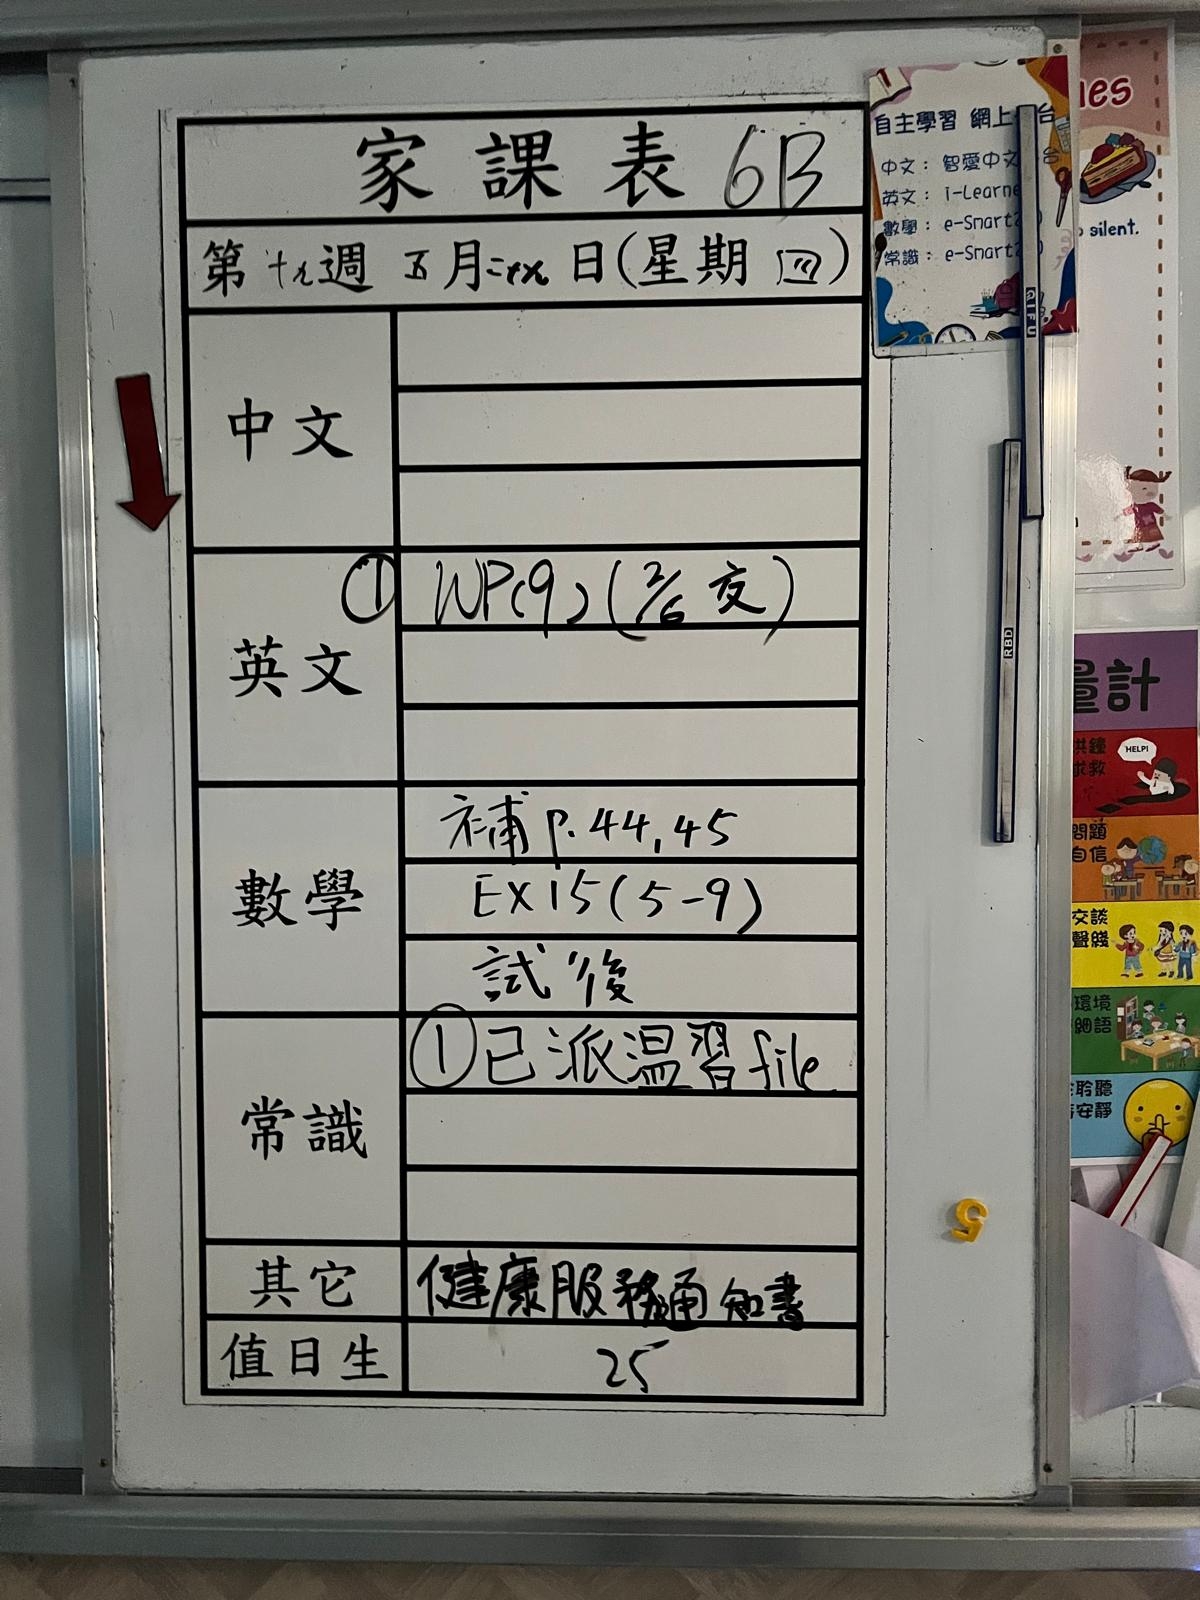 家課表 6B
第十九週 五月二十九日(星期四)
中文
英文
① WP(9)(2/6 交)
數學
補 p.44,45
EX15(5-9)
試後
常識
①已派温習file
其它
健康服務通知書
值日生
25
自主學習 網上
台
中文： 智愛中文
台
英文： i-Learne
數學： e-Smart
常識： e-Smart
QIFU
RBD
silent.
量計
HELP!
求救
問題
自信
交談
聲綫
環境
細語
聆聽
安靜
5